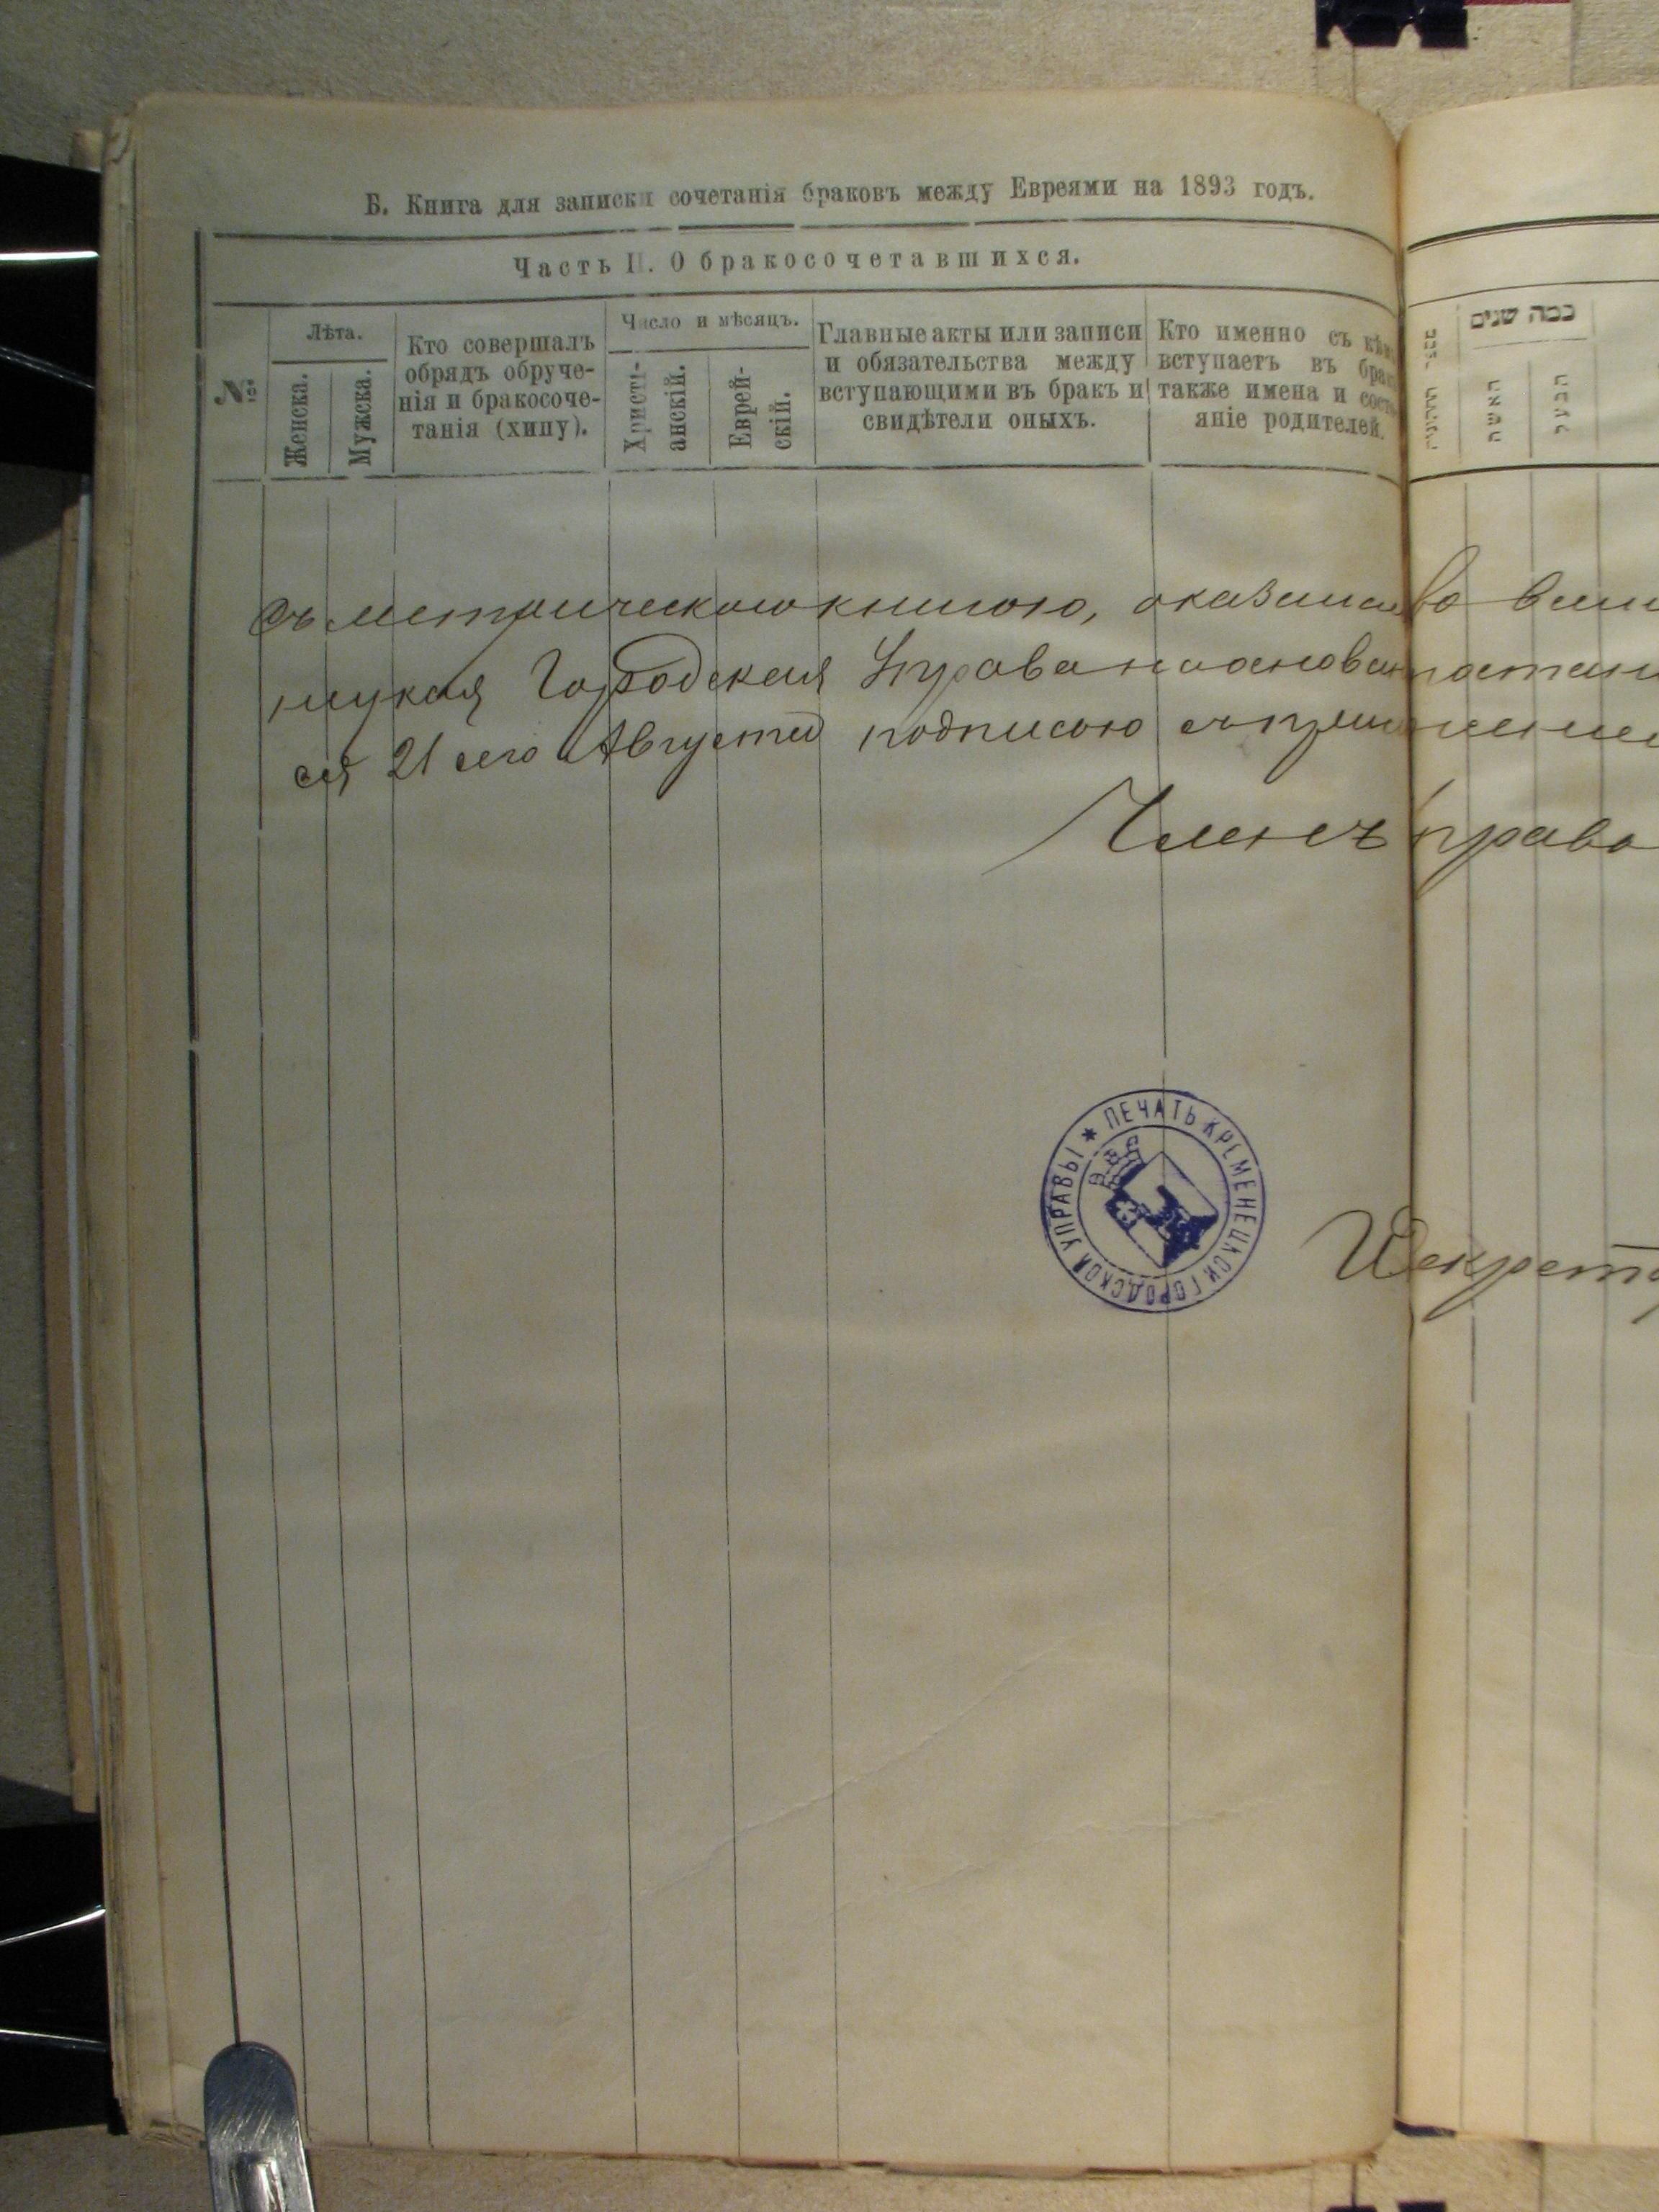 Б. Книга для записки сочетанія браковъ между Евреями на 1893 годъ.
Часть II. О бракосочетавшихся.
№
Лѣта.
Женска.
Мужска.
Кто совершалъ
обрядъ обруче-
нія и бракосоче-
танія (хипу).
Число и мѣсяцъ.
Христі-
анскій.
Еврей-
скій.
Главные акты или записи
и обязательства между
вступающими въ бракъ и
свидѣтели оныхъ.
Кто именно съ кѣмъ
вступаетъ въ бракъ
также имена и состо-
яніе родителей.
כמה שנים
האשה
съ метрическою книгою, оказалась
Городская Управа на основан
ся 21 сего Августа подписью съ
Членъ
Секрет
ПЕЧАТЬ КРЕМЕНЕЦКОЙ ГОРОДСКОЙ УПРАВЫ